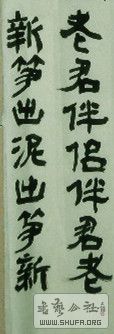 老君伴侣伴君老
新笋出泥出笋新
書藝公社
WWW.SHUFA.ORG